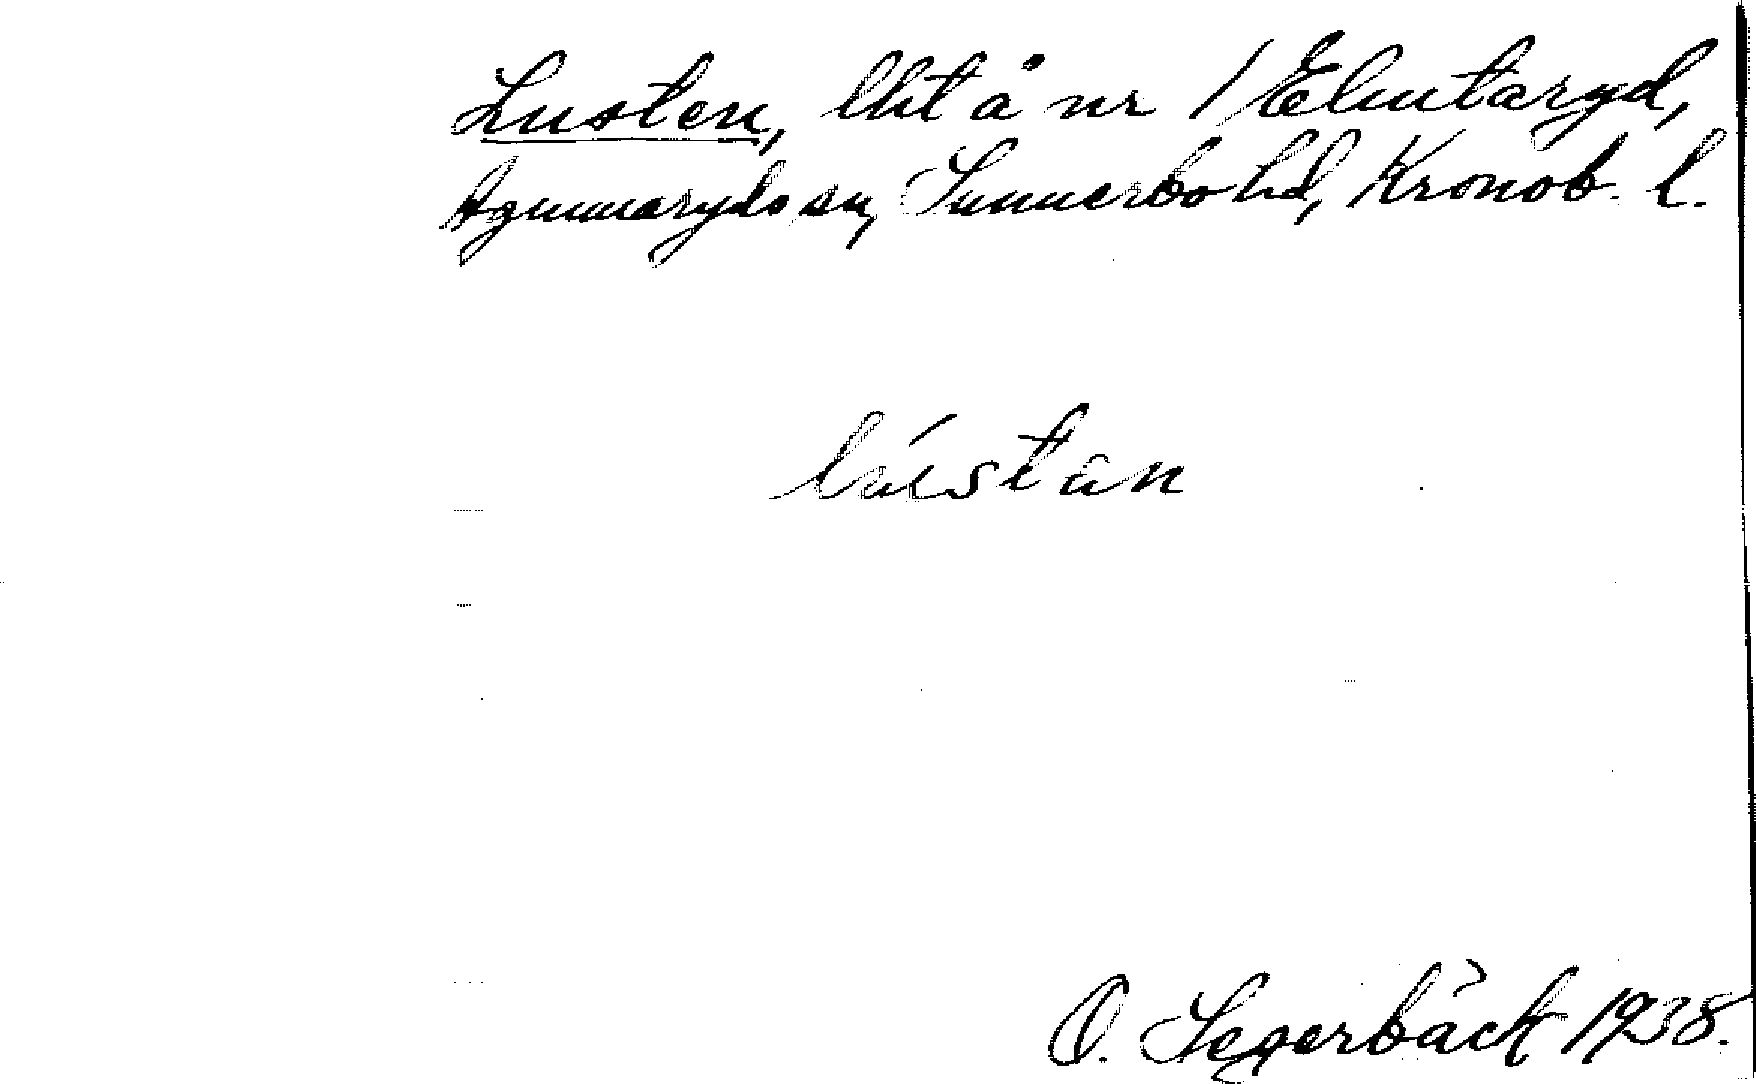 Lusten, lht å nr 1 Elmtaryd,
Agunnaryds sn, Sunnerbo hd, Kronob. l.
lústan
O. Segerbäck 1938.